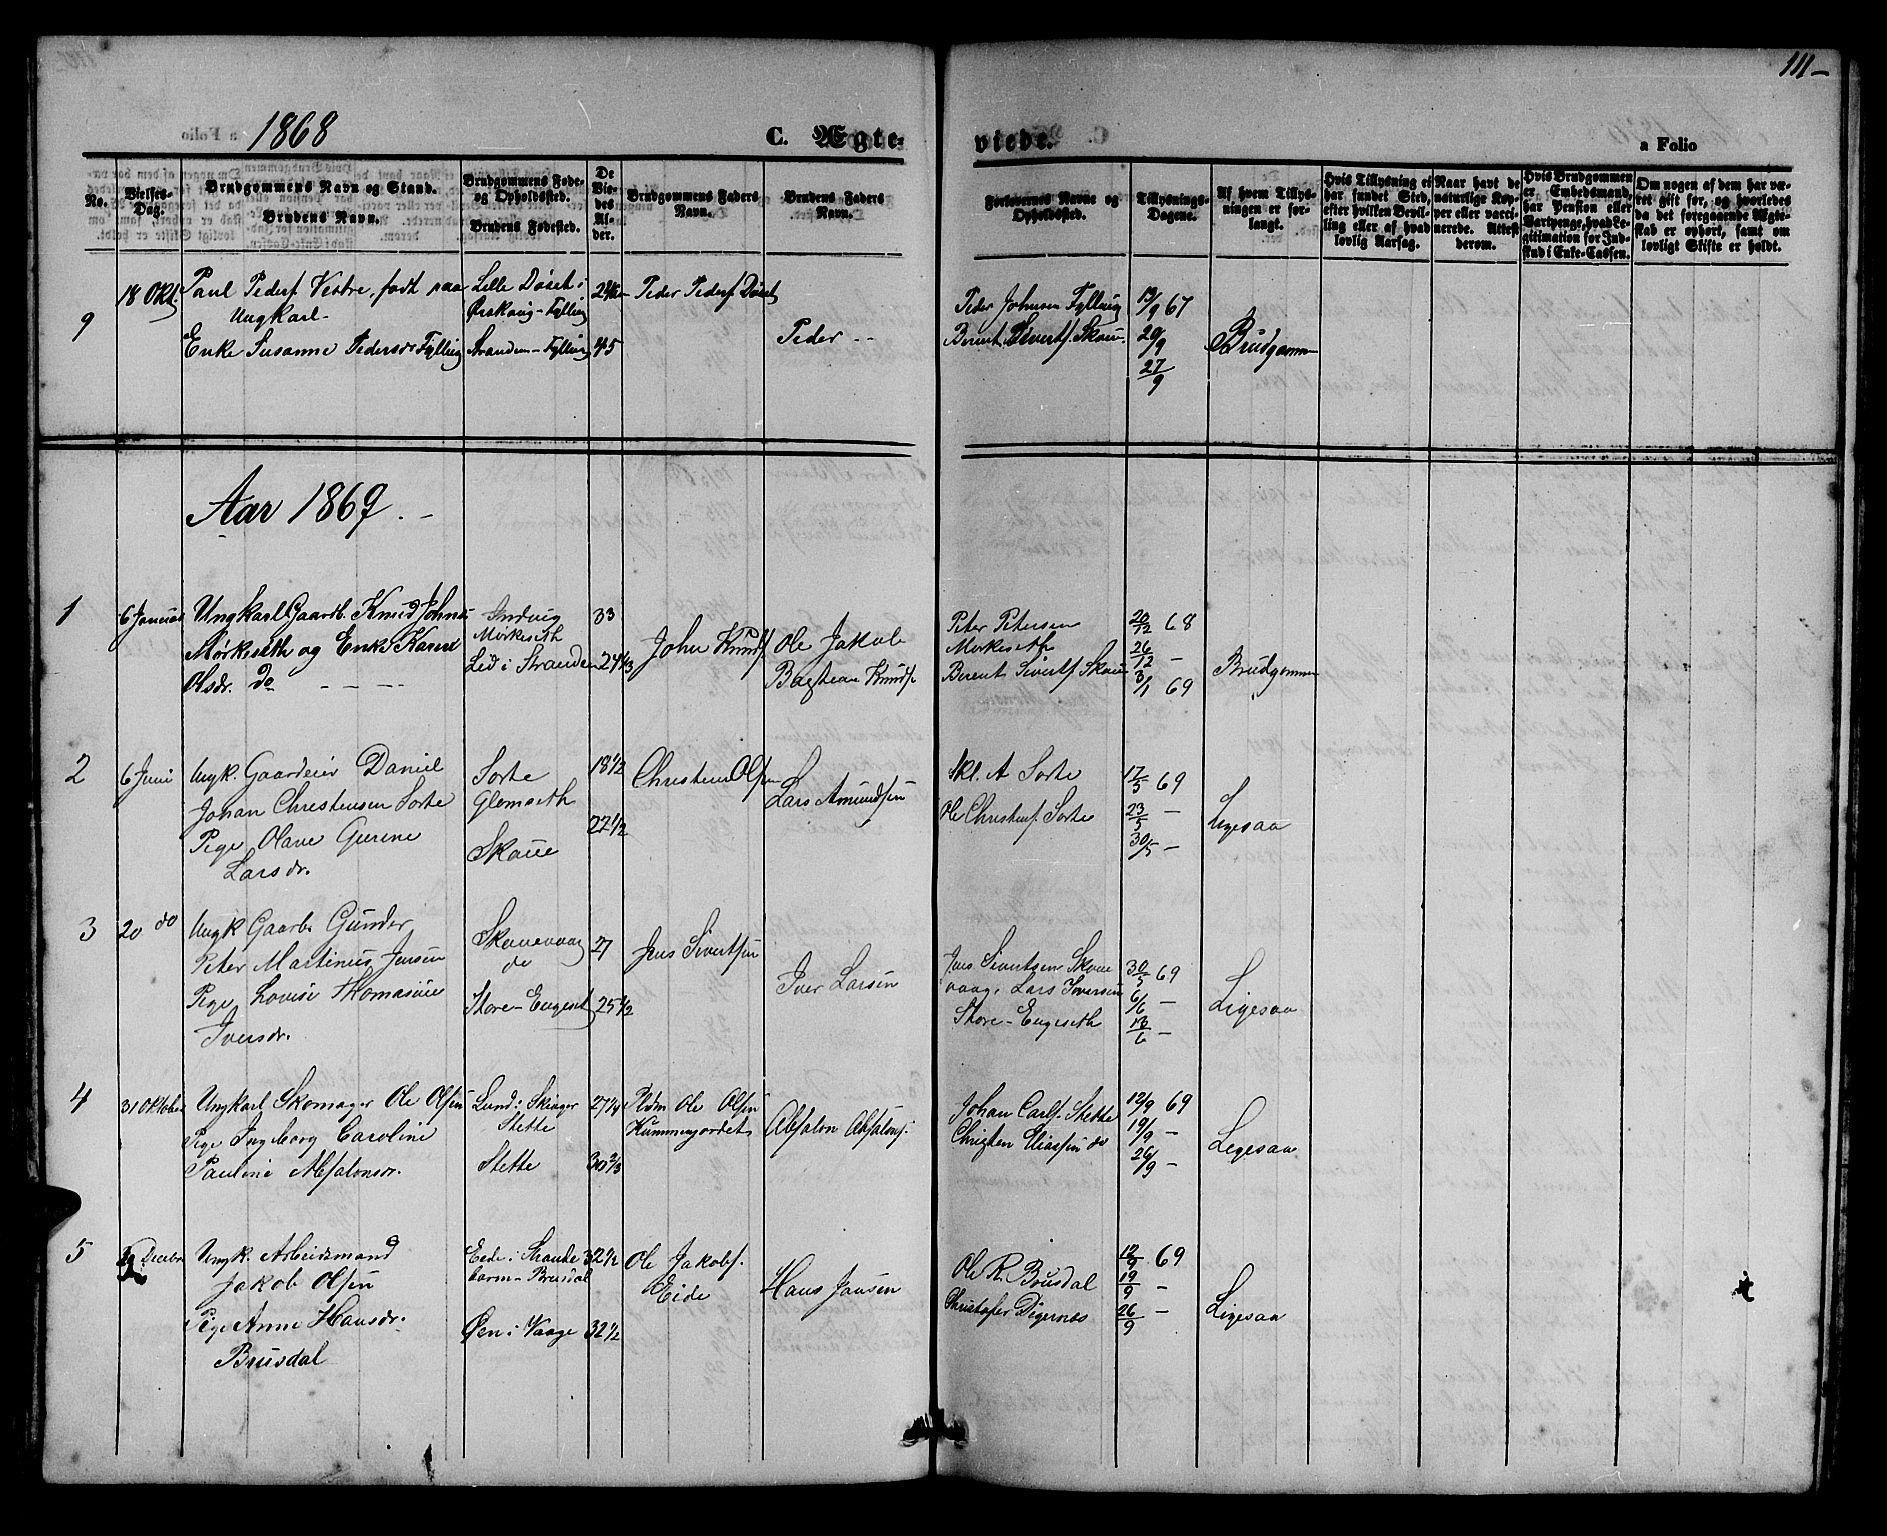 111-
1868
a Folio
C. Ægte-
viede.
a Folio
No.
Vielses-
Dag.
Brudgommens Navn og Stand.
Brudens Navn.
Brudgommens Føde-
og Opholdssted.
Brudens Fødested.
De
Vie-
des
Al-
der.
Brudgommens Faders
Navn.
Brudens Faders
Navn.
Forlovernes Navne og
Opholdssted.
Tillysnings-
Dagene.
Af hvem Tillys-
ningen er for-
langt.
Hvis Tillysning ei
har fundet Sted,
efter hvilken Bevil-
ling eller af hvad
lovlig Aarsag.
Naar havt de
naturlige Kop-
per eller vacci-
nerede. Attest
derom.
Hvis Brudgommen
er Embedsmand,
har Pension eller
Vartpenge, hvad Le-
gitimation for Ind-
skud i Enke-Cassen.
Om nogen af dem har væ-
ret gift før, og hvorledes
da det foregaaende Ægte-
skab er ophørt, samt om
lovligt Skifte er holdt.
9
18 Okt.
Paul Peders. Vestre, født paa
Ungkarl-
Enke Susanne Pedersdr Fylling
Lille Døset i
Ørskoug-Fylling
Stranden-Fylling
45
Peder Peders. Døset
Peder --
Peder Johnsen Fylling
Berent Siverts. Skoue
13/9 67
20/9
27/9
Brudgomm
Aar 1869.-
1
6 Januar
Ungkarl Gaardb. Knud Johns.
Mørkeseth og Enke Karen
Olsdr. do - - - -
Indvig
Mørkeseth
Lid i Stranden
33
24 1/3
John Knuds.
Ole Jakob
Bastean Knuds.
Peter Petersen
Mørkeseth
Berent Siverts. Skoue
20/12 68
26/12 -
3/1 69
Brudgomm
2
6 Juni
Ungk. Gaardeier Daniel
Johan Christensen Sorte
Pige Olave Gurine
Larsdr.
Sorte
Glomseth
Skoue
18 1/2
27 1/2
Christen Olsen
Lars Amundsen
Skl. A Sorte
Ole Christens. Sorte
17/5 69
23/5 -
30/5 -
Ligesaa
3
20 do
Ungk Gaarb. Gunder
Peter Martinus Jensen
Pige Lovise Thomasine
Iversdr.
Skouevaag
do
Store-Engeset
27
25 1/2
Jens Sivertsen
Iver Larsen
Jens Sivertsen Skoue
vaag, Lars Iversen
Store-Engeseth
30/5 69
6/6 -
13/6 -
Ligesaa
4
31 Oktober
Ungkarl Skomager Ole Olsen
Pige Ingborg Caroline
Pauline Absalonsdr.
Lund i Skinger
Stette
Stette
27 1/4
30 2/3
Pldm Ole Olsen
Absalon Absalons.
Johan Carls. Stette
Christen Eliassen do
12/9 69
19/9 -
26/9 -
Ligesaa
5
Decebr
Ungk. Arbeidsmand
Jakob Olsen
Pige Anne Hansdr.
Brusdal
Eide i Strande
barm-Brusdal
Øen i Vaage
32 1/2
32 1/2
Ole Jakobs.
Eide
Hans Jansen
Ole R. Brusdal
Christofer Digernæs
12/9 69
19/9 -
26/9 -
Ligesaa